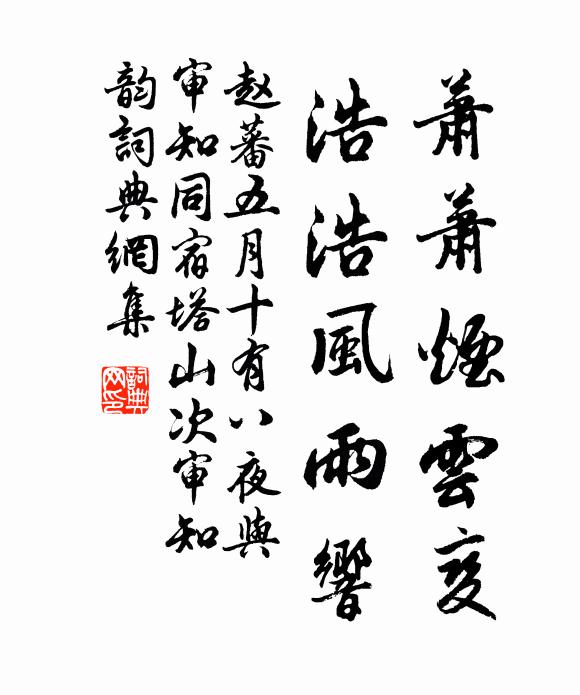 蕭蕭煙雲变
浩浩風雨響
赵蕃五月十有八夜與
审知同宿塔山次审知
韵詞典網集
詞典网印